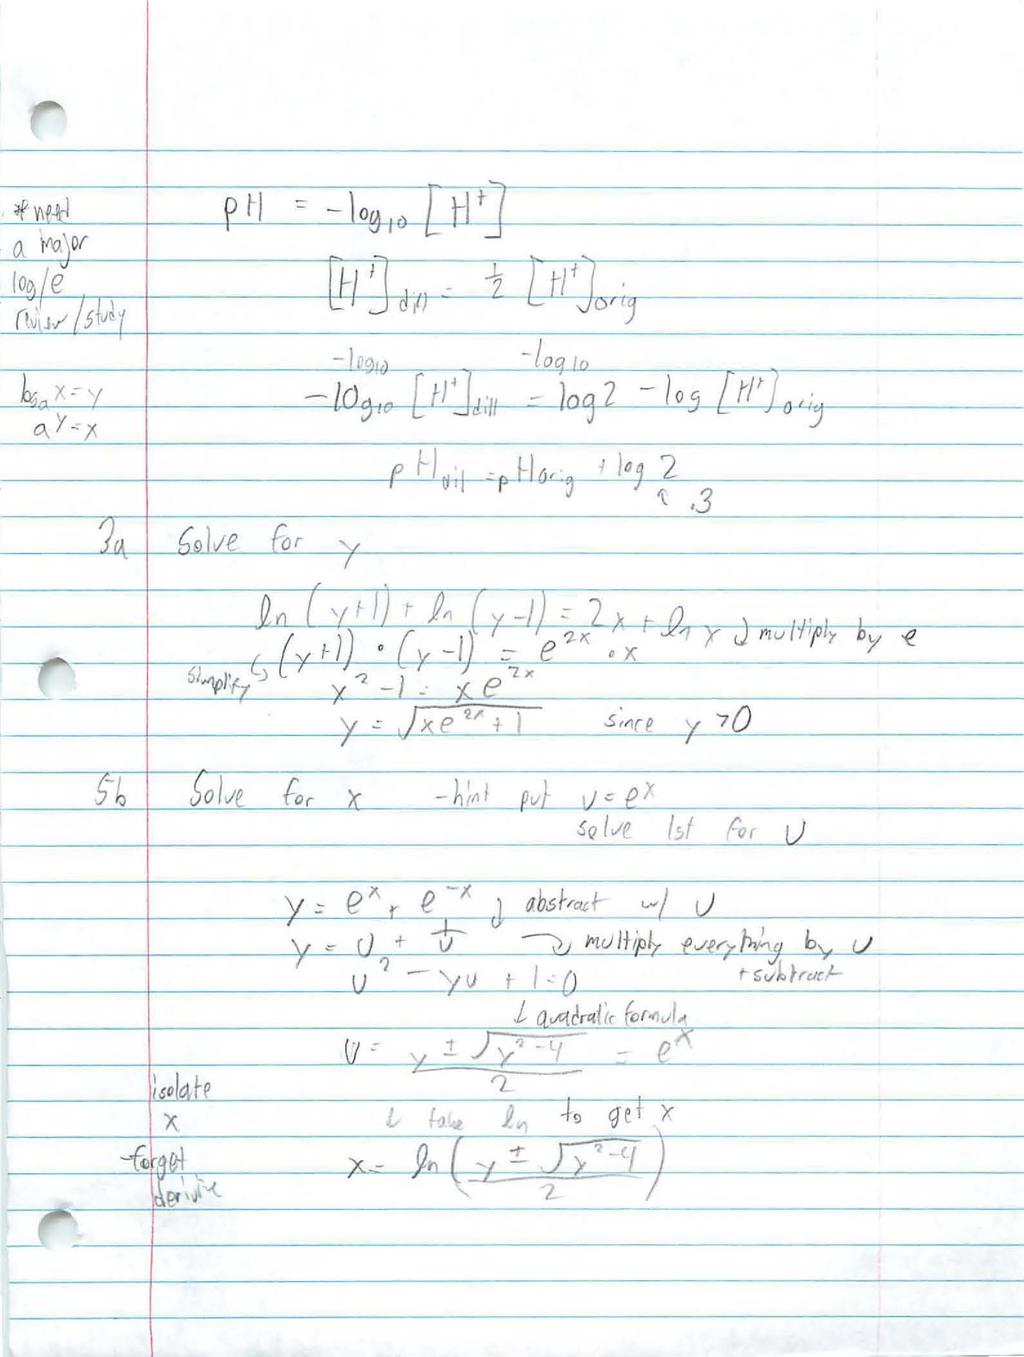 * need
a major
log/e
review/study
pH = -log₁₀ [H⁺]
[H⁺]dill = ½ [H⁺]orig
-log10 -log10
-log₁₀ [H⁺]dill = log2 - log [H⁺]orig
logₐx=y
a^y=x
pHdil = pHorig + log 2
↑ .3
3a Solve for y
ln (y+1) + ln (y-1) = 2x + ln x ↓ multiply by e
simplify ↳ (y+1) • (y-1) = e^2x • x
x² - 1 = xe^2x
y = √(xe^2x + 1) since y >0
5b Solve for x - hint put u = e^x
solve 1st for U
y = e^x + e^-x ↓ abstract w/ U
y = U + 1/U ↓ multiply everything by u
+subtract
u² - yu + 1=0
↓ quadratic formula
U = (y ± √(y²-4))/2 = e^x
isolate
x
↓ take ln to get x
-forget
x = ln((y ± √(y²-4))/2)